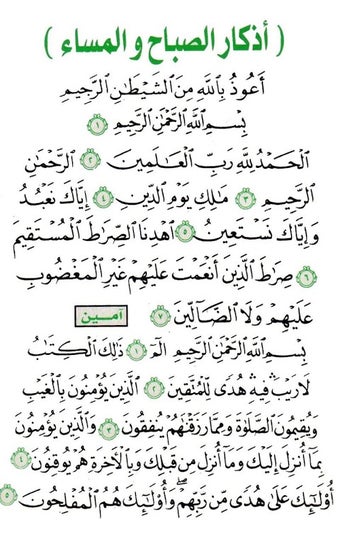 ( أذكار الصباح و المساء )
أَعُوذُ بِاللَّهِ مِنَ الشَّيْطَانِ الرَّجِيمِ
بِسْمِ اللَّهِ الرَّحْمَٰنِ الرَّحِيمِ ١
الْحَمْدُ لِلَّهِ رَبِّ الْعَالَمِينَ ٢ الرَّحْمَٰنِ
الرَّحِيمِ ٣ مَالِكِ يَوْمِ الدِّينِ ٤ إِيَّاكَ نَعْبُدُ
وَإِيَّاكَ نَسْتَعِينُ ٥ اهْدِنَا الصِّرَاطَ الْمُسْتَقِيمَ
٦ صِرَاطَ الَّذِينَ أَنْعَمْتَ عَلَيْهِمْ غَيْرِ الْمَغْضُوبِ
عَلَيْهِمْ وَلَا الضَّالِّينَ ٧ آمين
بِسْمِ اللَّهِ الرَّحْمَٰنِ الرَّحِيمِ الٓمٓ ١ ذَٰلِكَ الْكِتَابُ
لَا رَيْبَ ۛ فِيهِ ۛ هُدًى لِلْمُتَّقِينَ ٢ الَّذِينَ يُؤْمِنُونَ بِالْغَيْبِ
وَيُقِيمُونَ الصَّلَوٰةَ وَمِمَّا رَزَقْنَاهُمْ يُنفِقُونَ ٣ وَالَّذِينَ يُؤْمِنُونَ
بِمَا أُنزِلَ إِلَيْكَ وَمَا أُنزِلَ مِن قَبْلِكَ وَبِالْآخِرَةِ هُمْ يُوقِنُونَ ٤
أُولَٰئِكَ عَلَىٰ هُدًى مِّن رَّبِّهِمْ ۖ وَأُولَٰئِكَ هُمُ الْمُفْلِحُونَ ٥